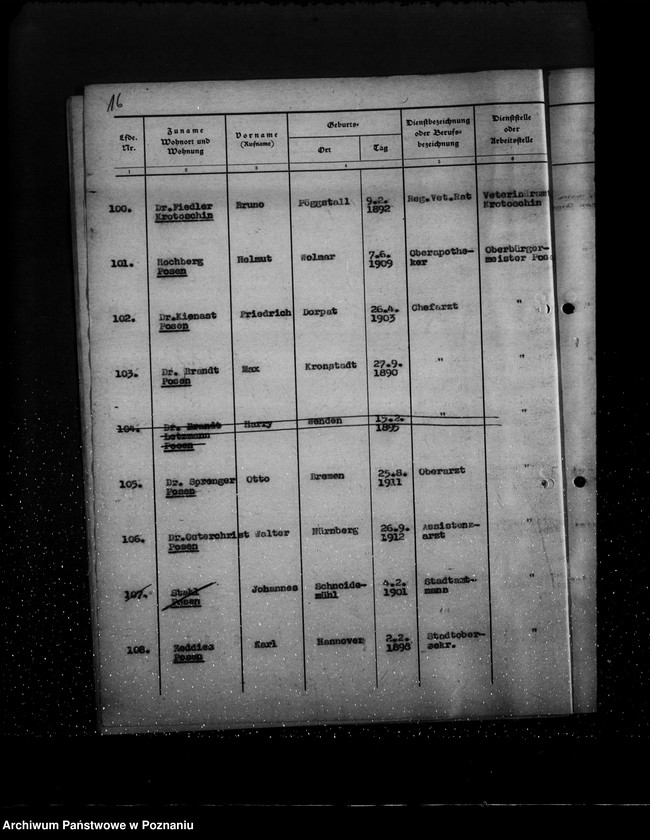 16
Lfde. Nr.
Zuname
Wohnort und
Wohnung
Vorname
(Rufname)
Geburts-
Ort
Tag
Dienstbezeichnung
oder Berufs-
bezeichnung
Dienststelle
oder
Arbeitsstelle
1 2 3 4 5 6
100. Dr. Fiedler Bruno Pöggstall 9.2. Reg.Vet.Rat Veterinäramt
Krotoschin 1892 Krotoschin
101. Hochberg Helmut Wolmar 7.6. Oberapothe- Oberbürger-
Posen 1909 ker meister Pos
102. Dr.Kienast Friedrich Dorpat 26.4. Chefarzt "
Posen 1903
103. Dr. Brandt Max Kronstadt 27.9. " "
Posen 1890
104. Dr. Brandt Harry Wenden 15.2. " "
1895
Posen
105. Dr. Sprenger Otto Bremen 25.8. Oberarzt "
Posen 1911
106. Dr.Osterchrist Walter Nürnberg 26.9. Assistenz- "
Posen 1912 arzt
107. Stahl Johannes Schneide- 4.2. Stadtamt- "
Posen mühl 1901 mann
108. Reddies Karl Hannover 2.2. Stadtober- "
Posen 1898 sekr.
Archiwum Państwowe w Poznaniu